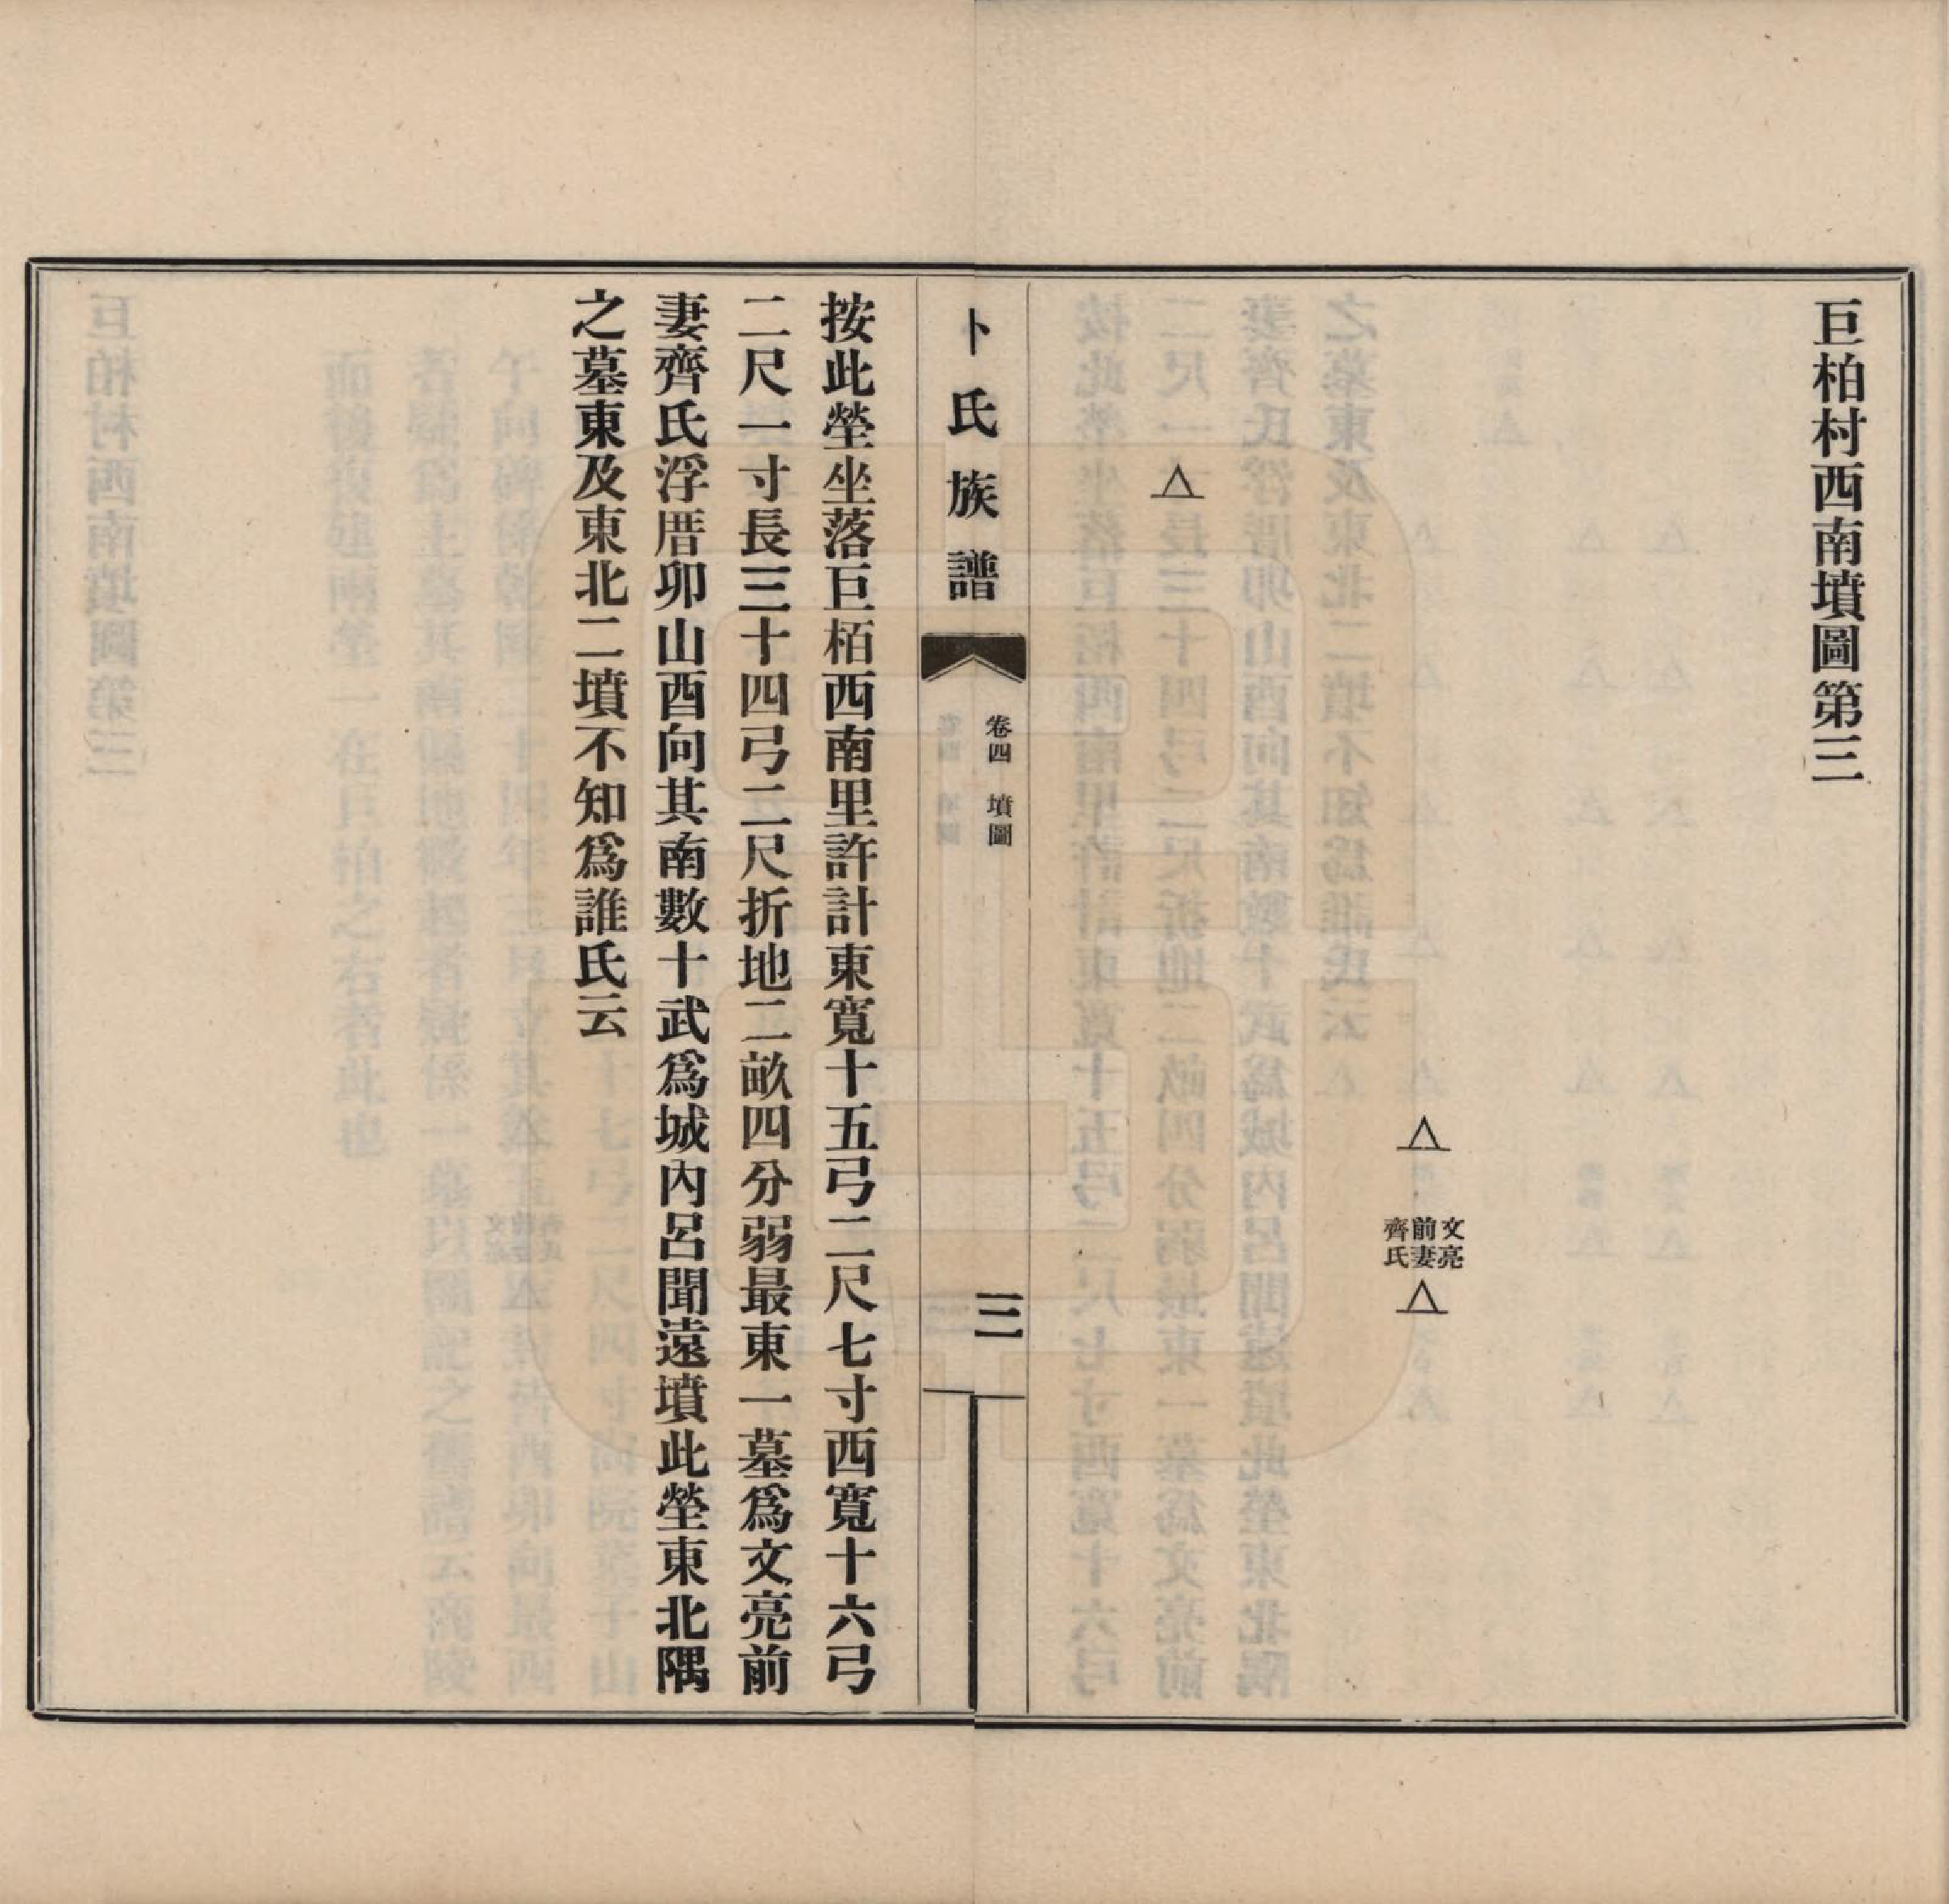 巨柏村西南墳圖第三
△
文亮
前妻
齊氏
△
△
卜氏族譜
卷四　墳圖
三
按此塋坐落巨栢西南里許計東寬十五弓二尺七寸西寬十六弓
二尺一寸長三十四弓二尺折地二畝四分弱最東一墓爲文亮前
妻齊氏浮厝卯山酉向其南數十武爲城內呂聞遠墳此塋東北隅
之墓東及東北二墳不知爲誰氏云